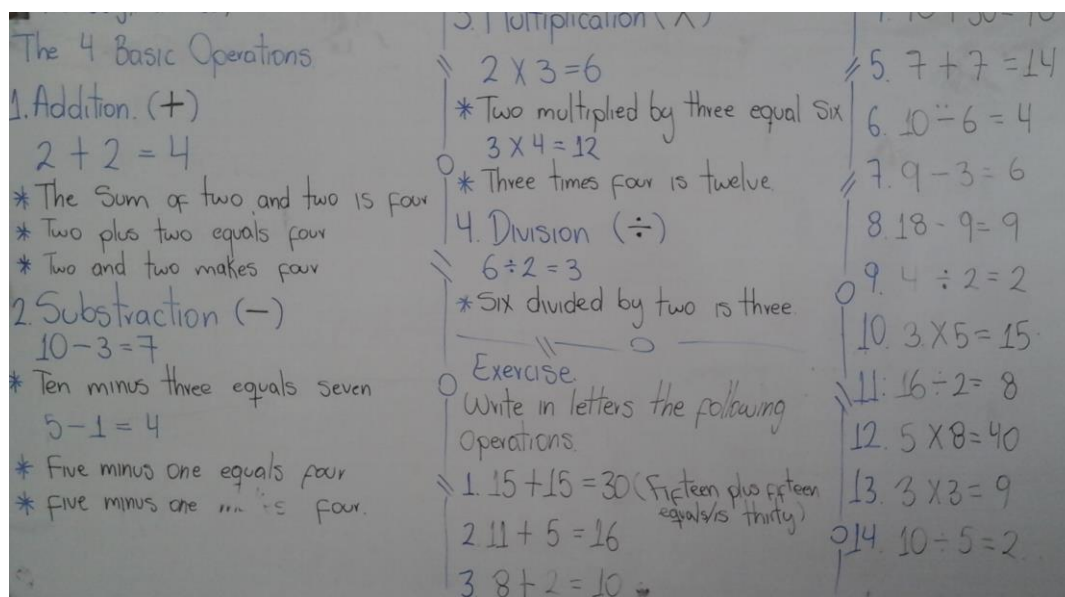 The 4 Basic Operations
1. Addition. (+)
2 + 2 = 4
* The Sum of two and two is four
* Two plus two equals four
* Two and two makes four
2. Substraction (-)
10 - 3 = 7
* Ten minus three equals seven
5 - 1 = 4
* Five minus one equals four
* five minus one is four.
3. Multiplication (X)
2 X 3 = 6
* Two multiplied by three equal Six
3 X 4 = 12
* Three times four is twelve.
4. Division (÷)
6 ÷ 2 = 3
* Six divided by two is three.
Exercise.
Write in letters the following
Operations.
1. 15 + 15 = 30 (Fifteen plus fifteen
equals/is thirty)
2. 11 + 5 = 16
3. 8 + 2 = 10
5. 7 + 7 = 14
6. 10 - 6 = 4
7. 9 - 3 = 6
8. 18 - 9 = 9
9. 4 ÷ 2 = 2
10. 3 X 5 = 15
11. 16 ÷ 2 = 8
12. 5 X 8 = 40
13. 3 X 3 = 9
14. 10 ÷ 5 = 2